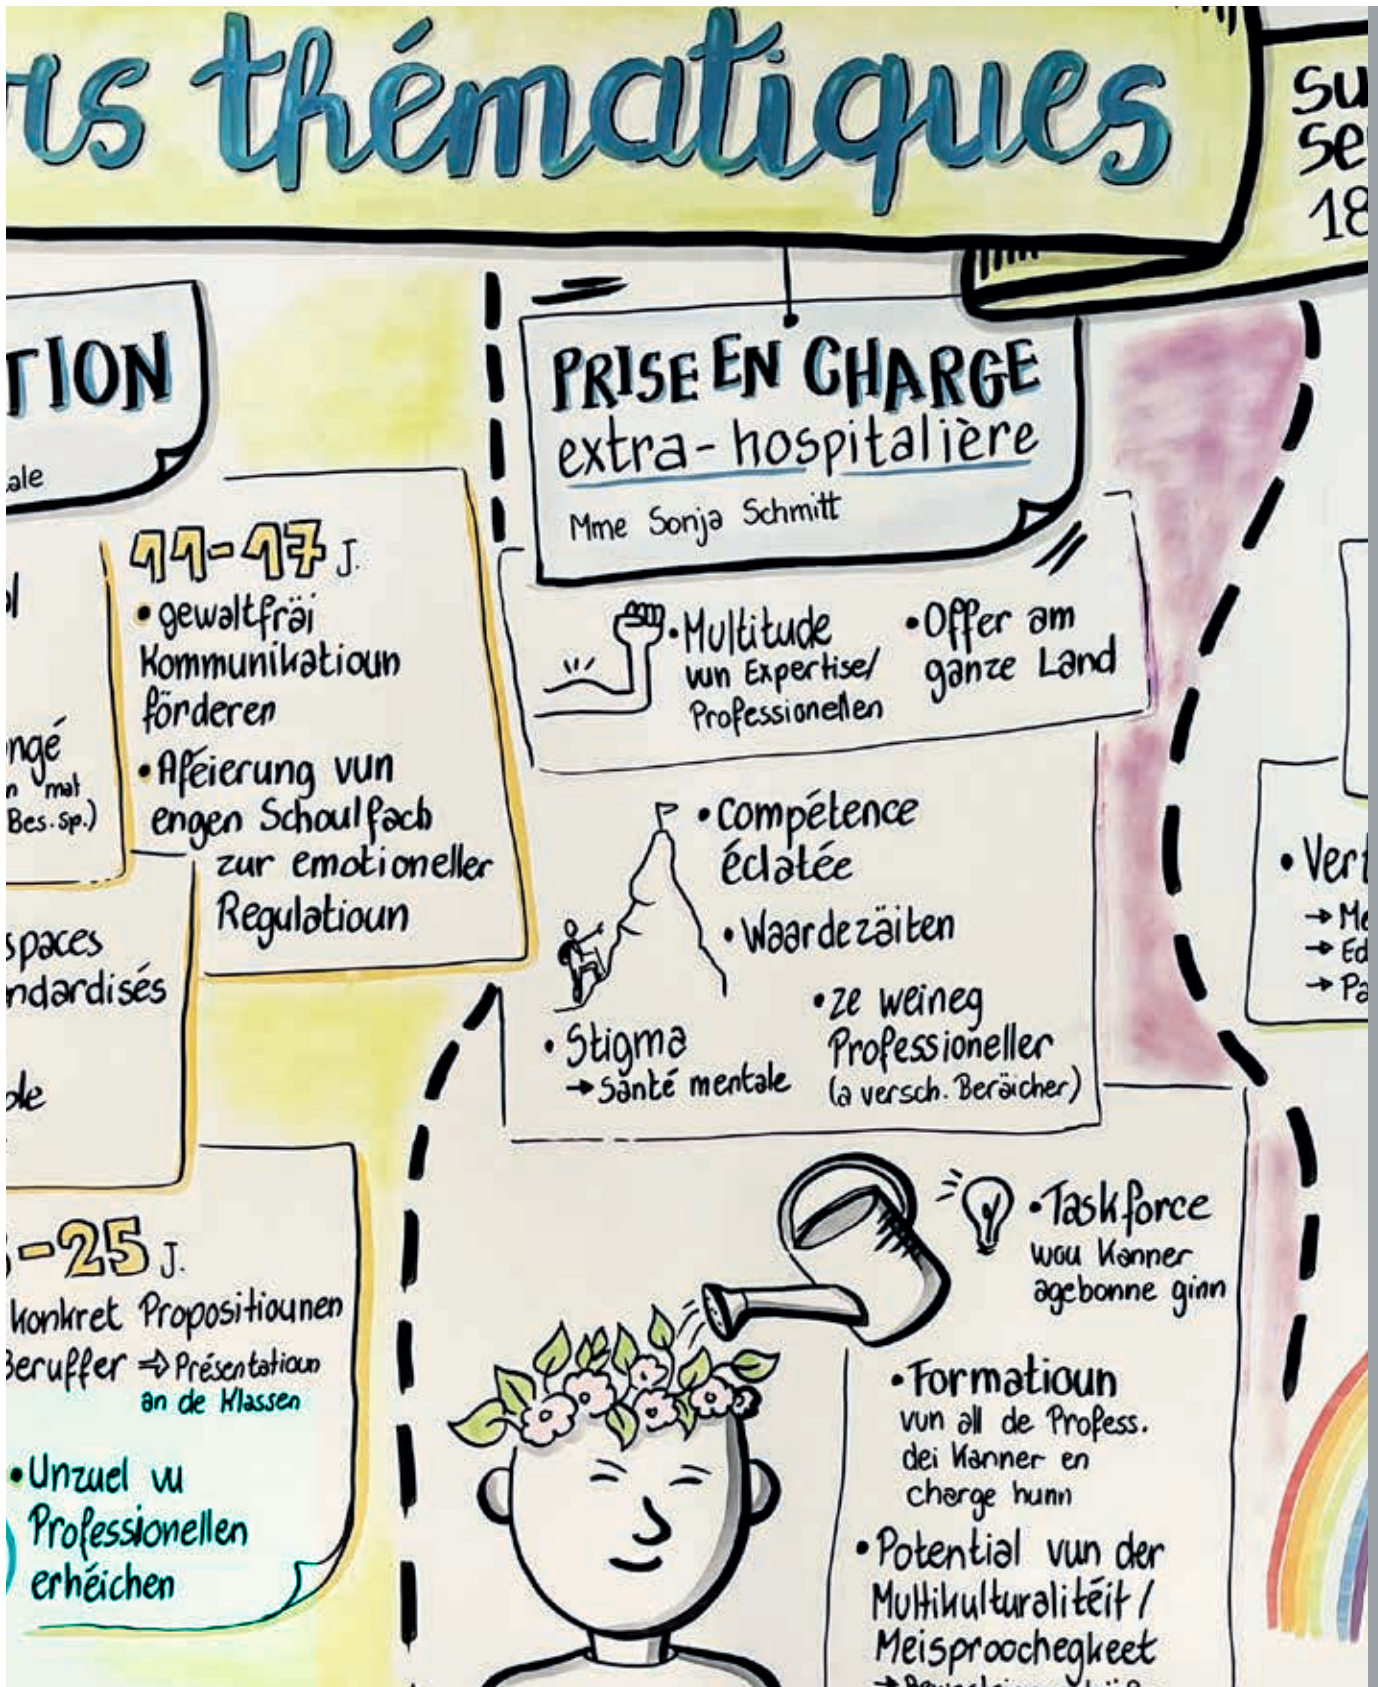 thématiques
TION
ale
11-17 J.
• gewaltfräi
Kommunikatioun
förderen
• Aféierung vun
engen Schoulfach
zur emotioneller
Regulatioun
ngé
mat
Bes. sp.)
spaces
ndardisés
-25 J.
konkret Propositiounen
Beruffer ⇒ Présentatioun
an de Klassen
• Unzuel vu
Professionellen
erhéichen
PRISE EN CHARGE
extra-hospitalière
Mme Sonja Schmitt
• Multitude
vun Expertise/
Professionellen
• Offer am
ganze Land
• Compétence
éclatée
• Waardezäiten
• Stigma
→ Santé mentale
• ze weineg
Professioneller
(a versch. Beräicher)
• Taskforce
wou Kanner
agebonne ginn
• Formatioun
vun all de Profess.
dei Kanner en
charge hunn
• Potential vun der
Multikulturalitéit/
Meisproochegkeet
su
se
18
• Ver
→ Me
→ Ed
→ Pa